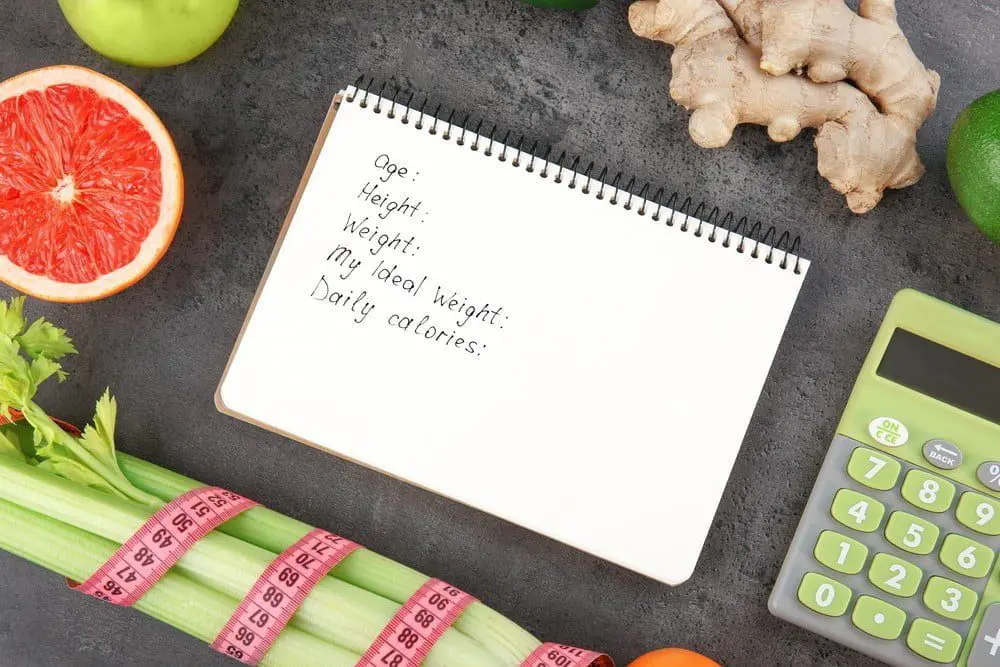 Age:
Height:
Weight:
My Ideal Weight:
Daily calories:
ON
C CE
BACK
%
7 8 9
4 5 6
1 2 3
0 . =
+
46 47 48 49 50 51 52
65 66 67 68 69 70 71
87 88 89 90
109